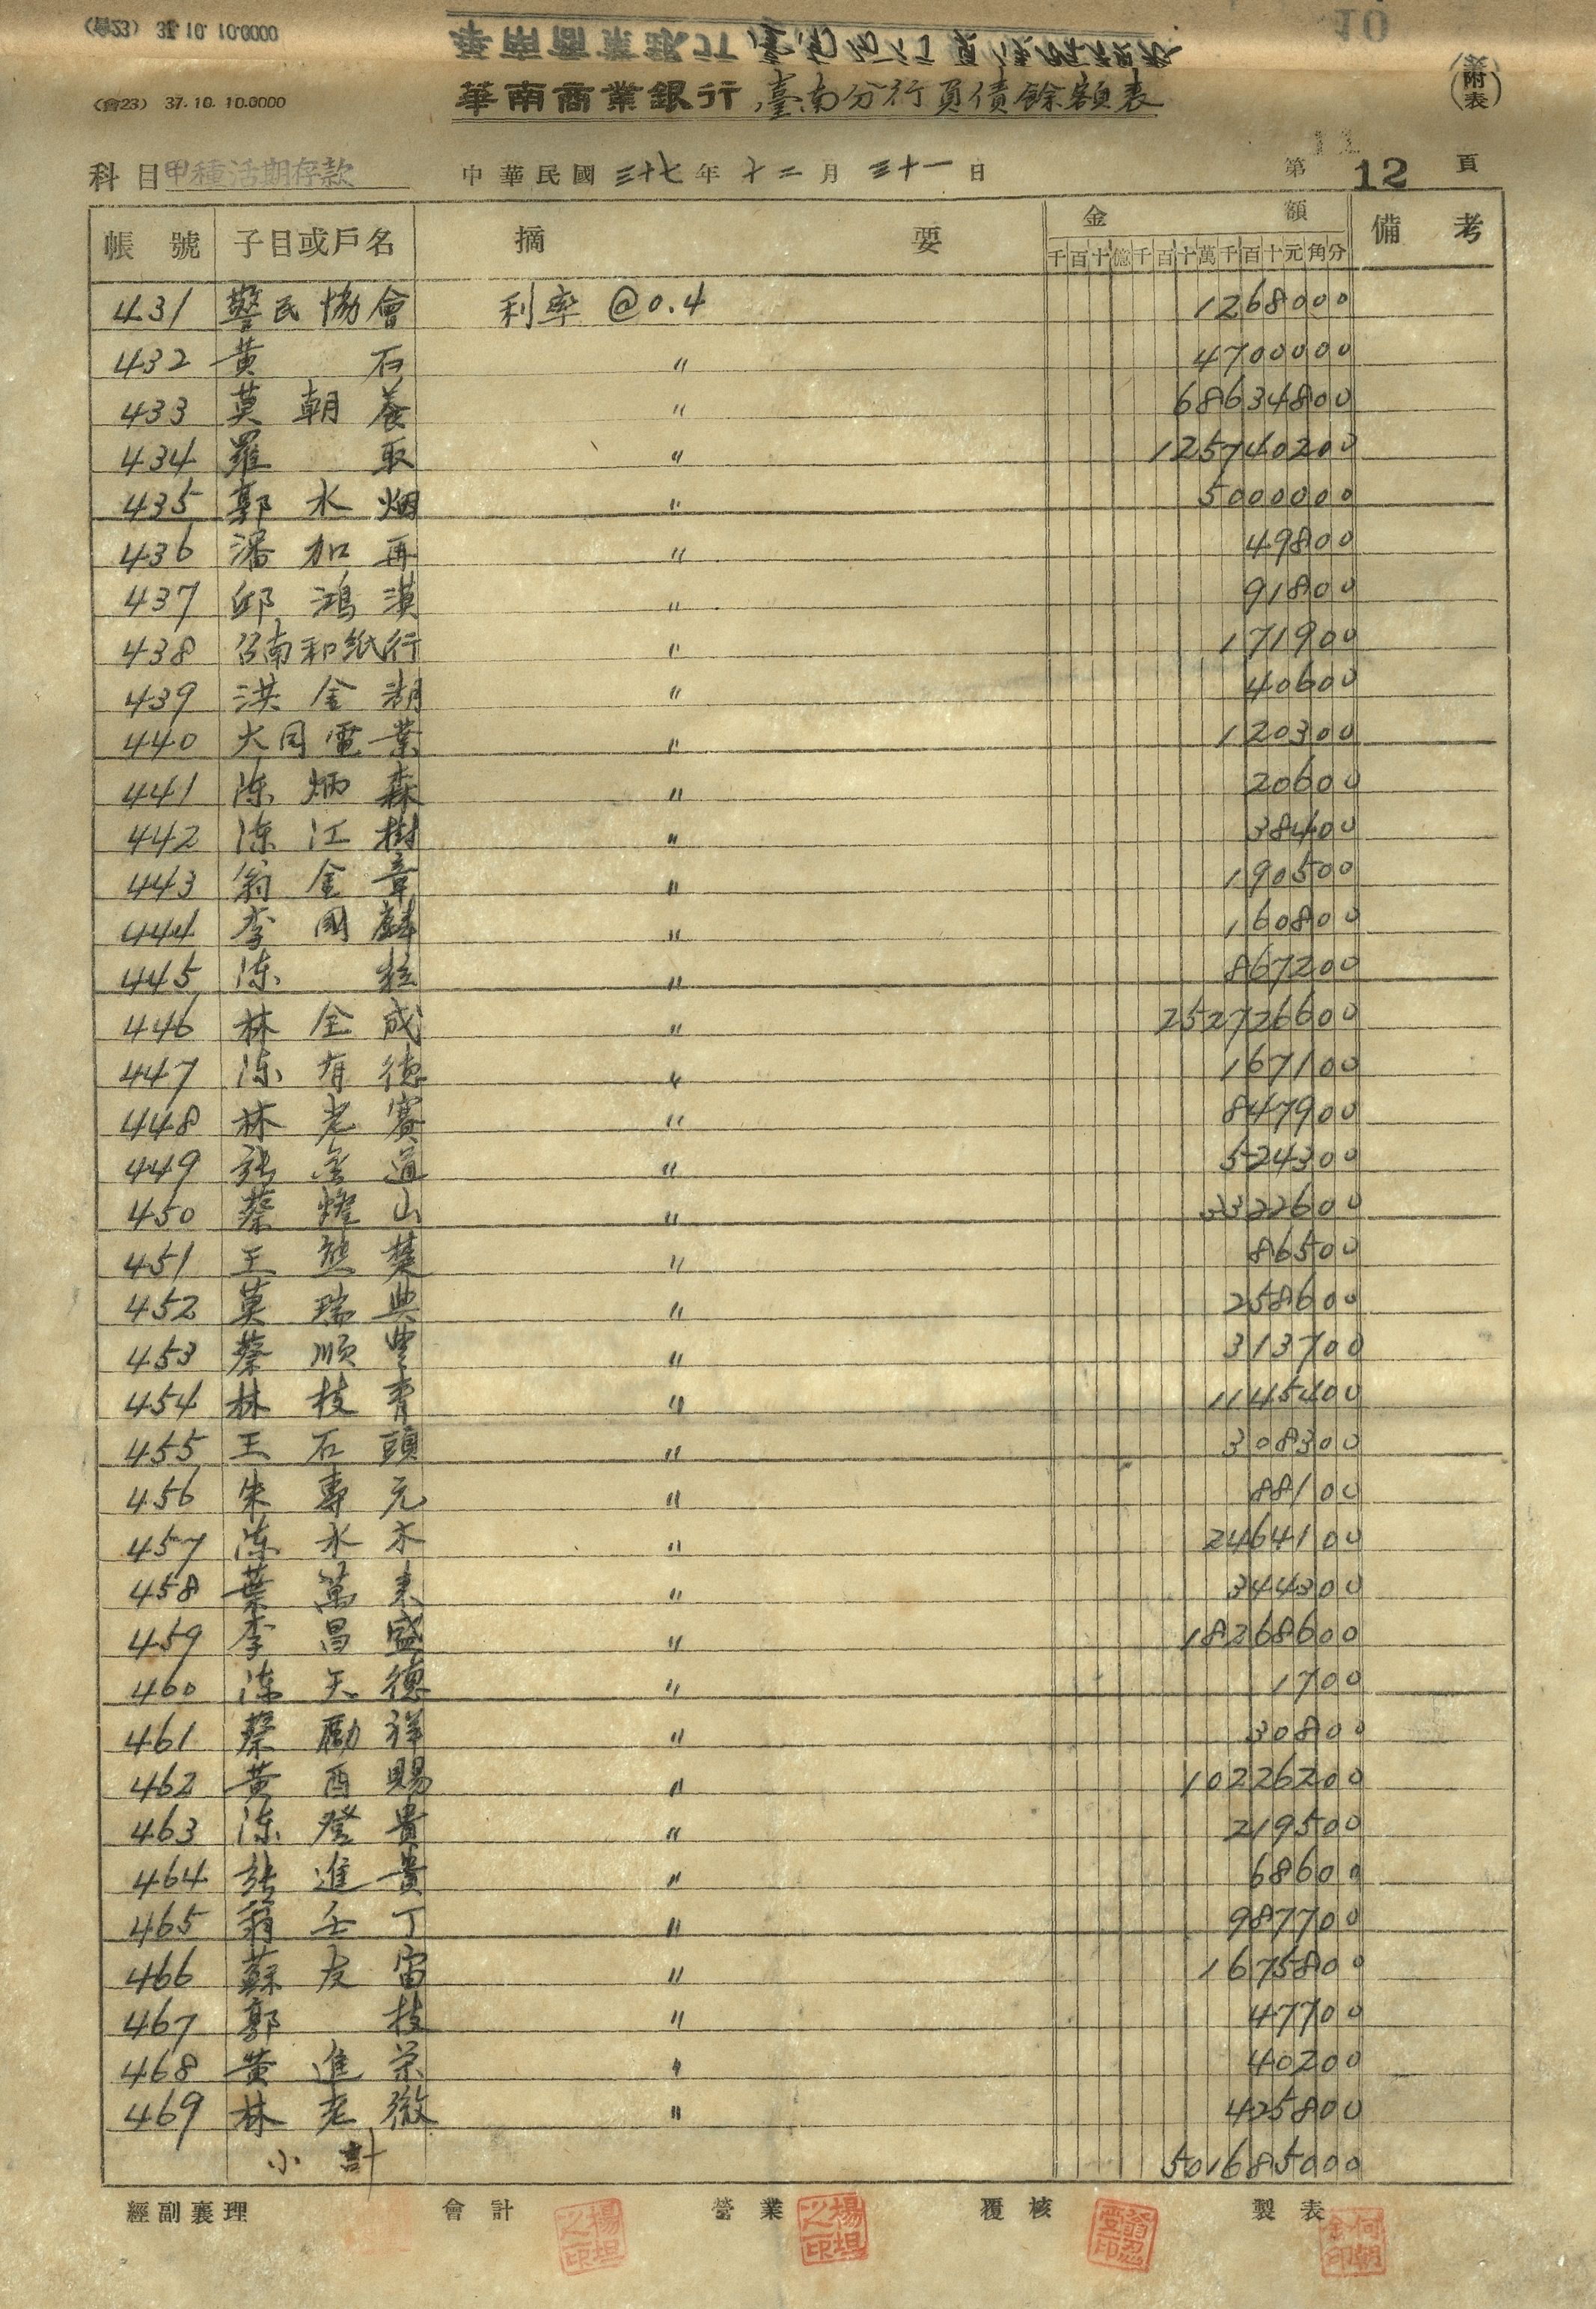 (會23) 37.10.10.0000
華南商業銀行臺南分行負債餘額表
(附表)
(會23) 37.10.10.0000
華南商業銀行臺南分行負債餘額表
科目 甲種活期存款 中華民國三十七年十二月三十一日 第12頁
帳號 子目或戶名 摘要 金額 備考
千百十億千百十萬千百十元角分
431 警民協會 利率 @0.4 1268000
432 黃石 〃 4700000
433 莫朝養 〃 68634800
434 羅取 〃 125740200
435 郭水烟 〃 5000000
436 潘加再 〃 49800
437 邱鴻漠 〃 91800
438 台南和紙行 〃 171900
439 洪金湖 〃 40600
440 大同電業 〃 120300
441 陳炳森 〃 20600
442 陳江樹 〃 38400
443 翁金章 〃 190500
444 李國麟 〃 160800
445 陳 〃 867200
446 林全成 〃 252726600
447 陳有德 〃 167100
448 林老賓 〃 847900
449 張金道 〃 524300
450 蔡燈山 〃 3322600
451 王熊楚 〃 86500
452 莫瑞典 〃 258600
453 蔡順豐 〃 313700
454 林枝青 〃 1145400
455 王石頭 〃 308300
456 朱專元 〃 88100
457 陳水木 〃 2464100
458 葉萬來 〃 344300
459 李昌盛 〃 18268600
460 陳天德 〃 1700
461 蔡勵祥 〃 30800
462 黃酉賜 〃 10226200
463 陳登貴 〃 219500
464 張進貴 〃 68600
465 翁壬丁 〃 987700
466 蘇友雷 〃 1675800
467 郭技 〃 47700
468 黃進榮 〃 40200
469 林老徽 〃 425800
小計 501685000
經副襄理 會計 營業 覆核 製表
楊坦之印 楊坦之印 翁忍受印 何朝金印